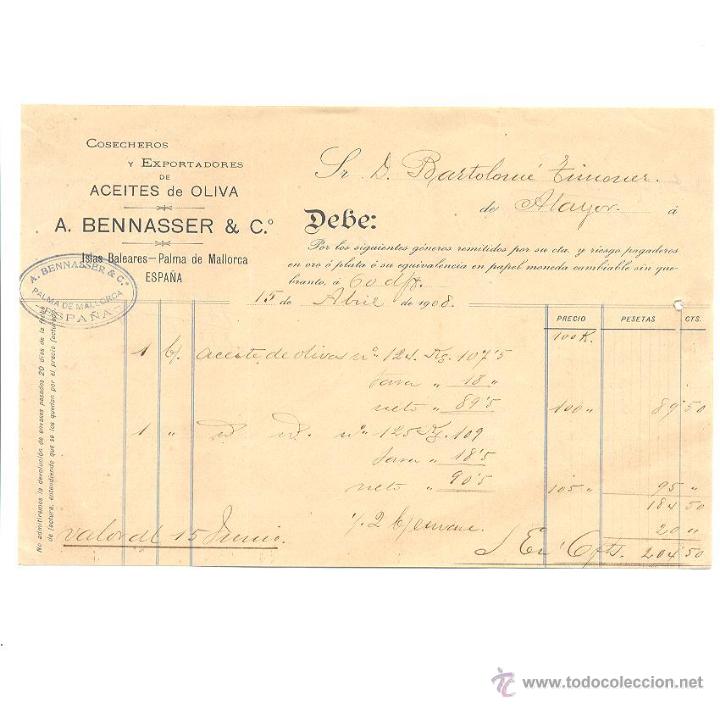 COSECHEROS
Y EXPORTADORES
DE
ACEITES de OLIVA
A. BENNASSER & C.º
Islas Baleares—Palma de Mallorca
ESPAÑA
A. BENNASSER & Cª
PALMA DE MALLORCA
ESPAÑA
Sr D. Bartolomé Timoner.
de Alayor. á
Debe:
Por los siguientes géneros remitidos por su cta. y riesgo pagaderos
en oro ó plata ó su equivalencia en papel moneda cambiable sin que-
branto, á 60 d/f.
15 de Abril de 1908.
PRECIO PESETAS CTS.
100 K.
1 b/. aceite de olivas nº 124 Kg. 107'5
tara " 18 "
neto " 89'5 100 " 89'50
1 " id. id. nº 125 Kg. 109
tara " 18'5
neto " 90'5 105 " 95 "
184 50
v/ 2 b/ envase 20 "
valor al 15 Junio. 204 50
No admitiremos la devolución de envases pasados 20 días de la fecha
de factura, entendiendo que se los quedan por el precio facturado.
todocoleccion
www.todocoleccion.net